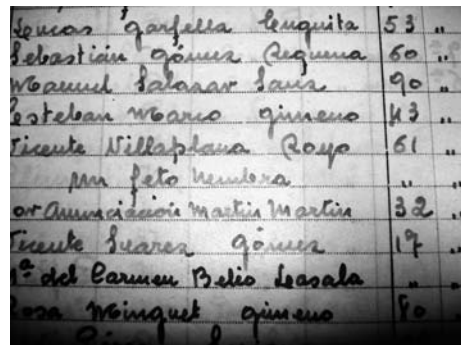 Garfella Enguita 53 "
Sebastián Gómez Requena 60 "
Manuel Salazar Sanz 90 "
Esteban Marco Gimeno 43 "
Vicente Villaplana Royo 61 "
Un feto hembra " "
Sor Anunciación Martin Martin 32 "
Vicente Suarez Gómez 17 "
Mª del Carmen Belio Leasala " "
Rosa Minguet Gimeno 80 "